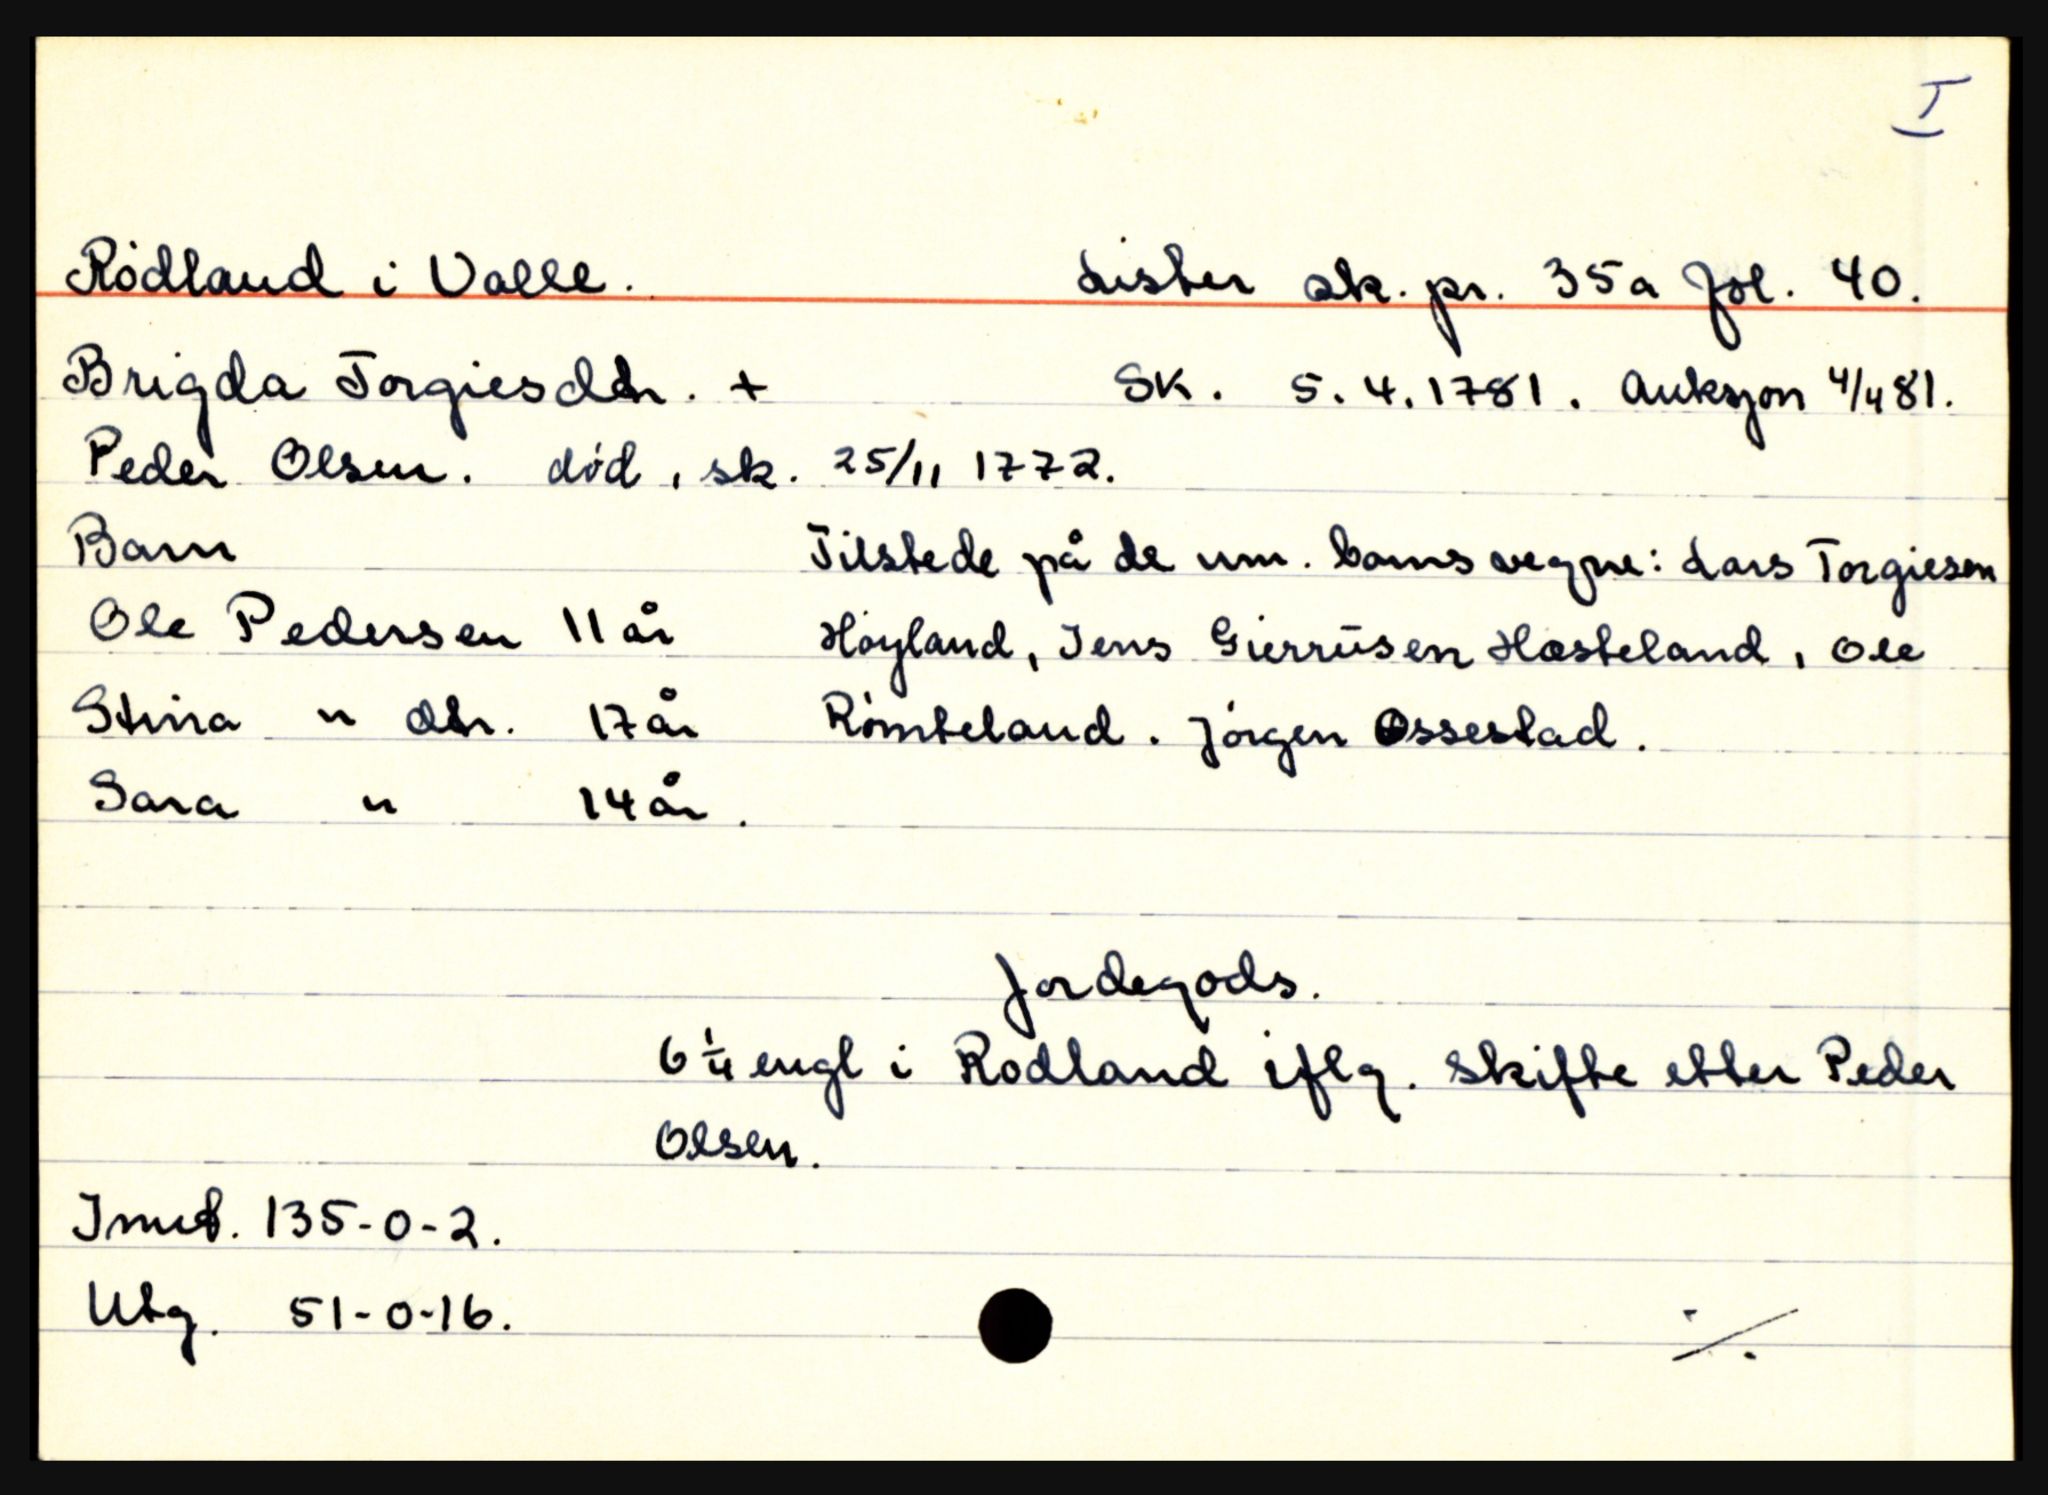 I
Rødland i Valle. Lister sk. pr. 35a fol. 40.
Brigda Torgiesdtr. + SK. 5.4.1781. Auksjon 4/4 81.
Peder Olsen. død, sk. 25/11 1772.
Barn Tilstede på de um. barns vegne: Lars Torgiesen
Ole Pedersen 11 år Høyland, Jens Gierrüsen Hæsteland, Ole
Stina " dtr. 17 år Rømteland. Jørgen Ossestad.
Sara " 14 år.
Jordegods.
6 1/4 engl i Rødland iflg. skifte etter Peder
Olsen.
Innt. 135-0-2.
Utg. 51-0-16.
./.